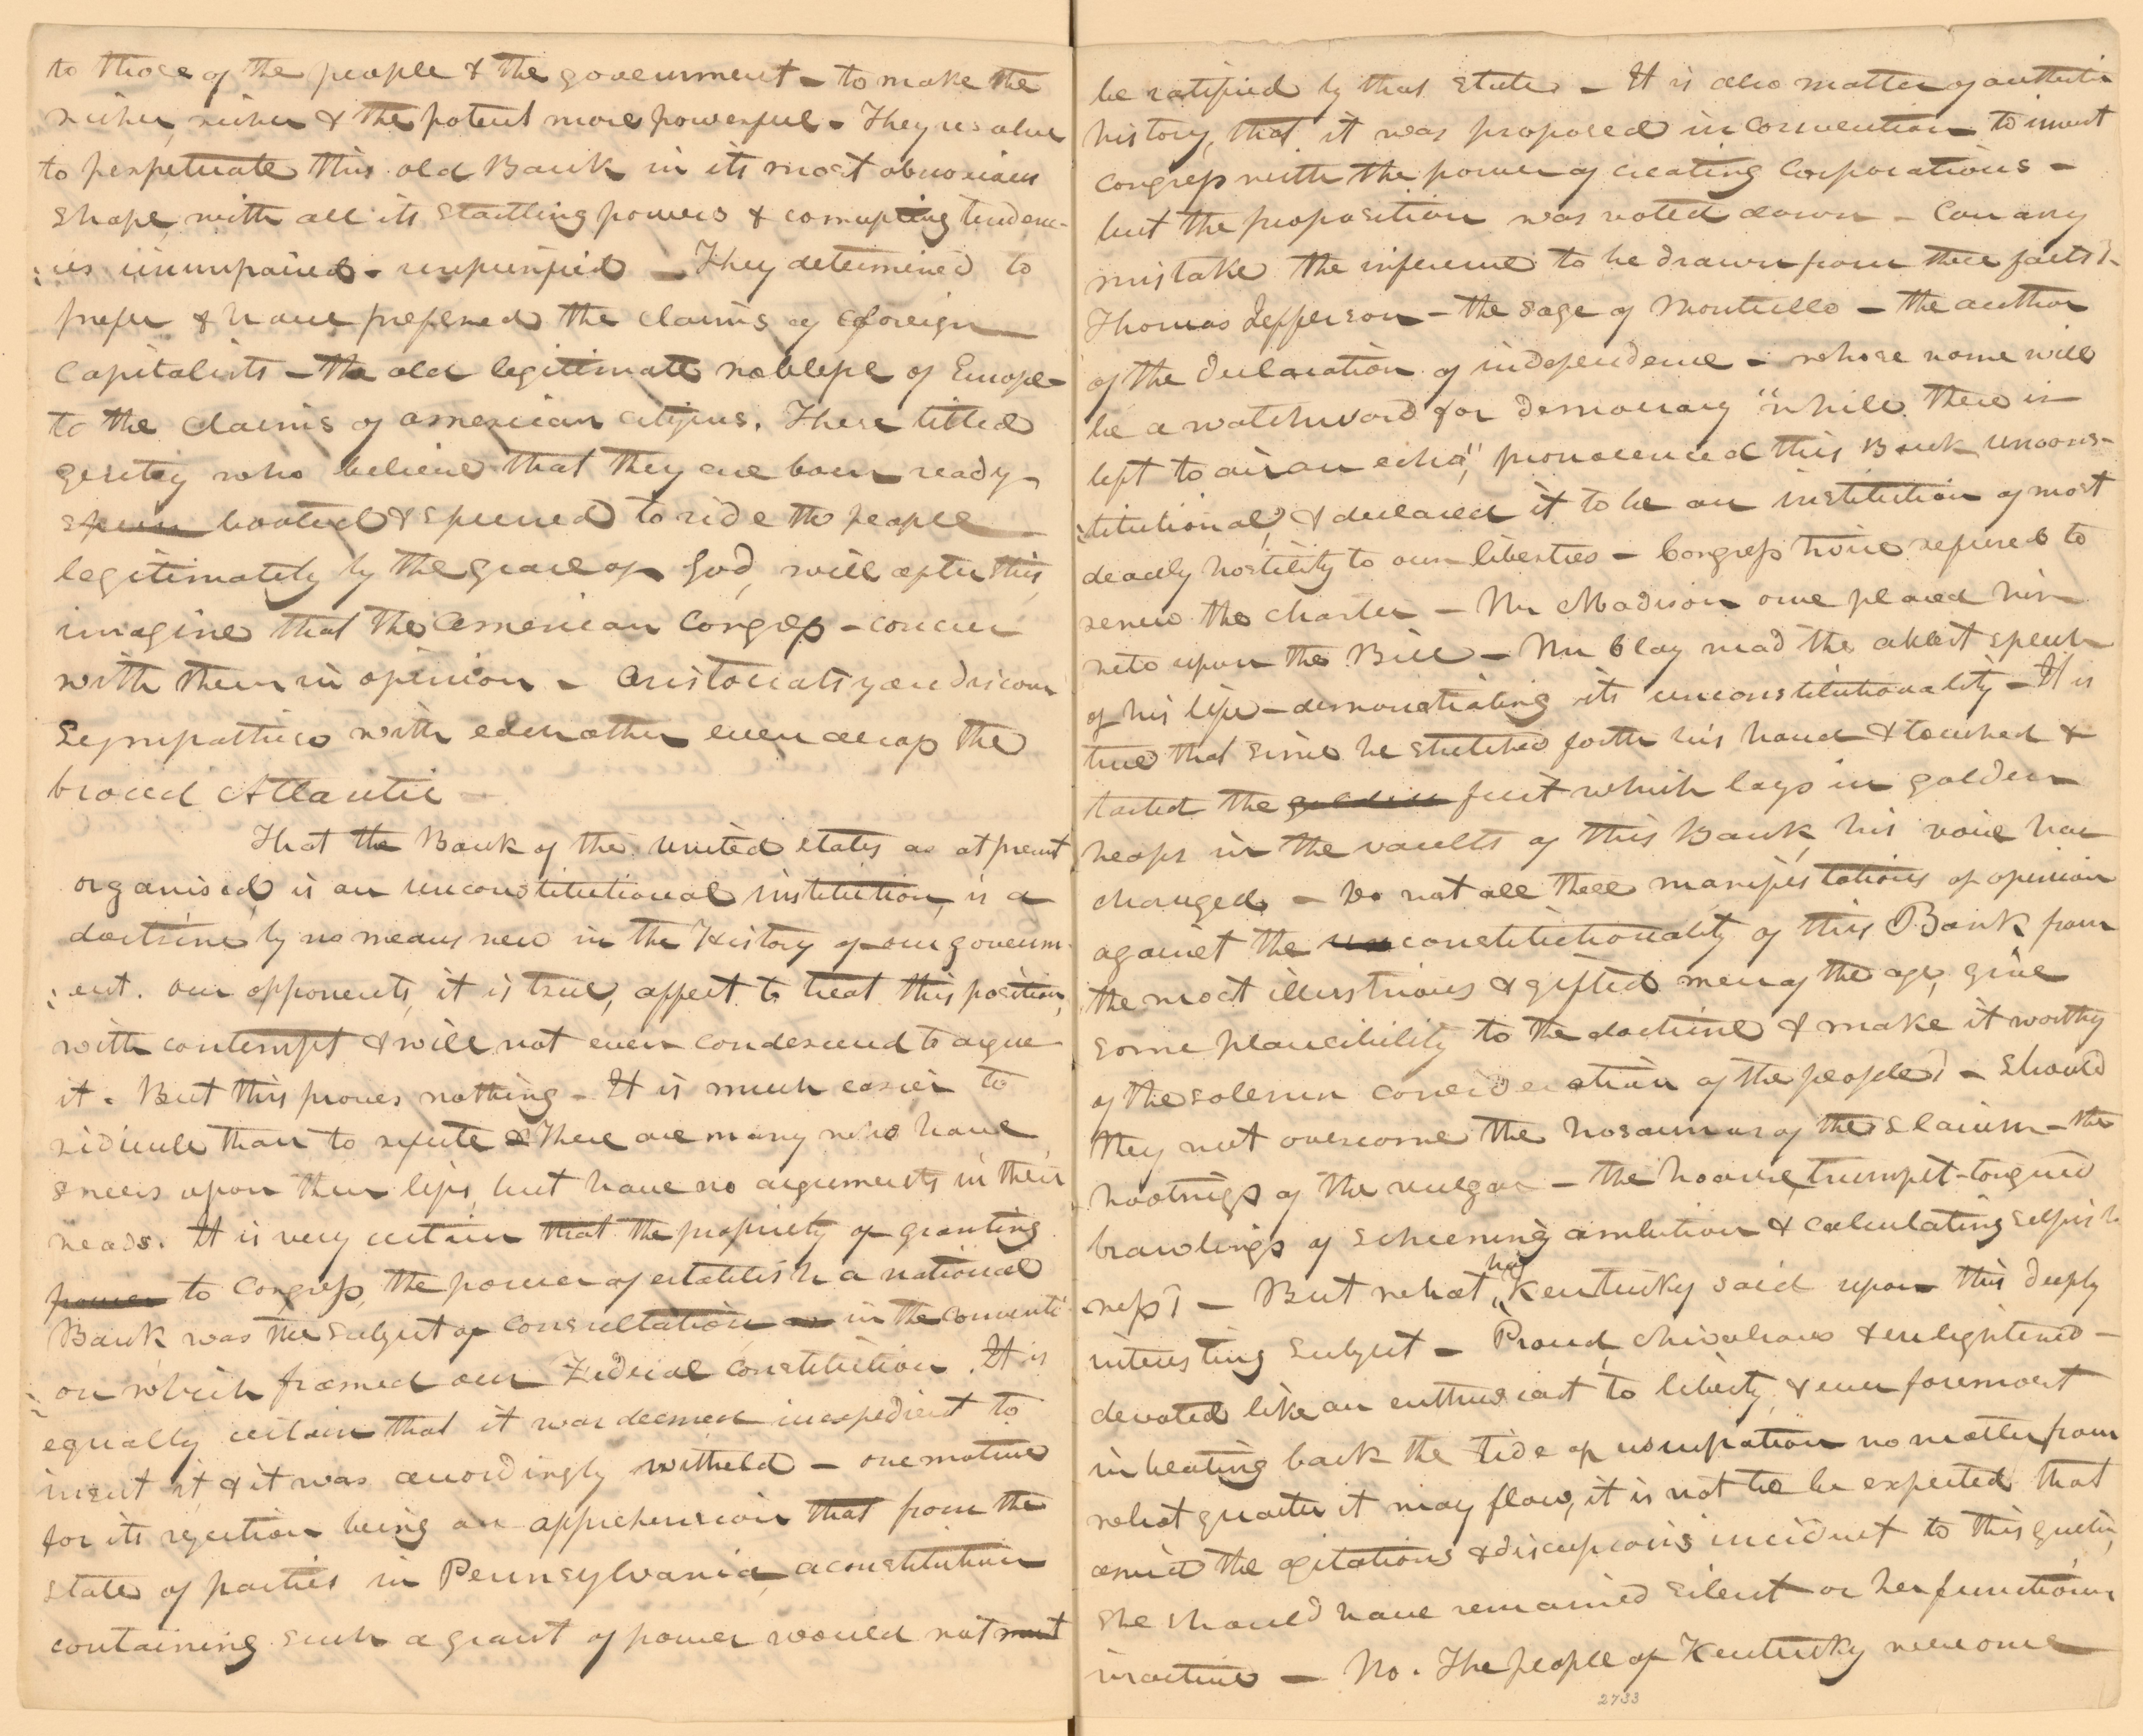 to those of the people & the government - to make the
richer, richer & the potent more powerful - They resolve
to perpetuate this old Bank in its most obnoxious
shape, with all its startling powers & corrupting tendenc-
:ies unimpaired - unpurified - They determined to
prefer & have prefered the claims of foreign
Capitalists - the old legitimate noblesse of Europe -
to the claims of american citizens. These titled
gentry who believe that they are born ready
spurr booted & spurred to ride the people
legitimately by the grace of God, will after this,
imagine that the American Congress - concur
with them in opinion - Aristocrats you discover
Sympathise with eachother even across the
broad Atlantic -
That the Bank of the United States as at present
organised, is an unconstitutional institution, is a
doctrine by no means new in the History of our governm-
:ent. Our opponents, it is true, affect to treat this position,
with contempt & will not even condescend to argue
it. But this proves nothing - It is much easier to
ridicule than to refute & There are many who have
sneers upon their lips, but have no arguments in their
heads. It is very certain that the propriety of granting
power to Congress, the power of establish a national
Bank was the subject of consultation in the conventi-
:on which framed our Federal Constitution. It is
equally certain that it was deemed inexpedient to
insert it, & it was accordingly witheld - one motive
for its rejection being an apprehension that from the
state of parties in Pennsylvania, a constitution
containing such a grant of power would not not
be ratified by that State - It is also matter of authentic
history, that it was proposed in convention to invest
Congress with the power of creating Corporations -
but the proposition was voted down - Can any
mistake the inference to be drawn from these facts?
Thomas Jefferson - the sage of Monticello - the author
of the Declaration of independence - whose name will
be a watchword for democracy "while there is
left to air an echo", pronounced this Bank uncons-
:titutional, & declared it to be an institution of most
deadly hostility to our liberties - Congress twice refused to
renew the charter - Mr Madison once placed his
veto upon the Bill - Mr Clay mad the ablest speech
of his life - demonstrating its unconstitutionality - It is
true that since he stretched forth his hand & touched &
tasted the golden fruit which lays in golden
heaps in the vaults of this Bank, his voice has
changed - Do not all these manifestations of opinion
against the un constitutionality of this Bank from
the most illustrious & gifted men of the age, give
some plausibility to the doctrine & make it worthy
of the solemn consideration of the people? - Should
they not overcome the hosannas of the slavish - the
hootings of the vulgar - the hoarse, trumpet-tongued
brawlings of scheming ambition & calculating selfish
ness? - But what has Kentucky said upon this deeply
interesting subject - Proud, chivalrous & enlightened -
devoted like an enthusiast to liberty, & ever foremost
in beating back the tide of usurpation no matter from
what quarter it may flow, it is not to be expected that
amid the agitations & discussions incident to this question,
she should have remained silent or her functions
inactive - No. The people of Kentucky were once
2733